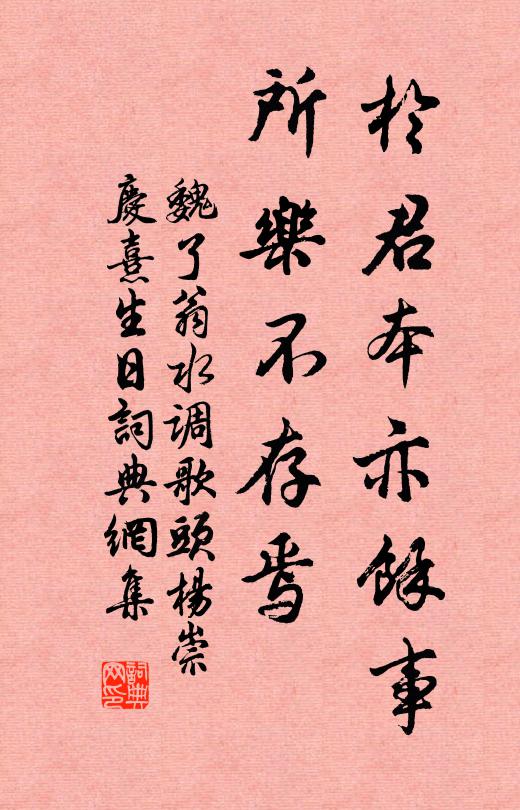 於君本亦餘事
所樂不存焉
魏了翁水调歌頭楊崇
慶熹生日詞典網集
詞典
网印